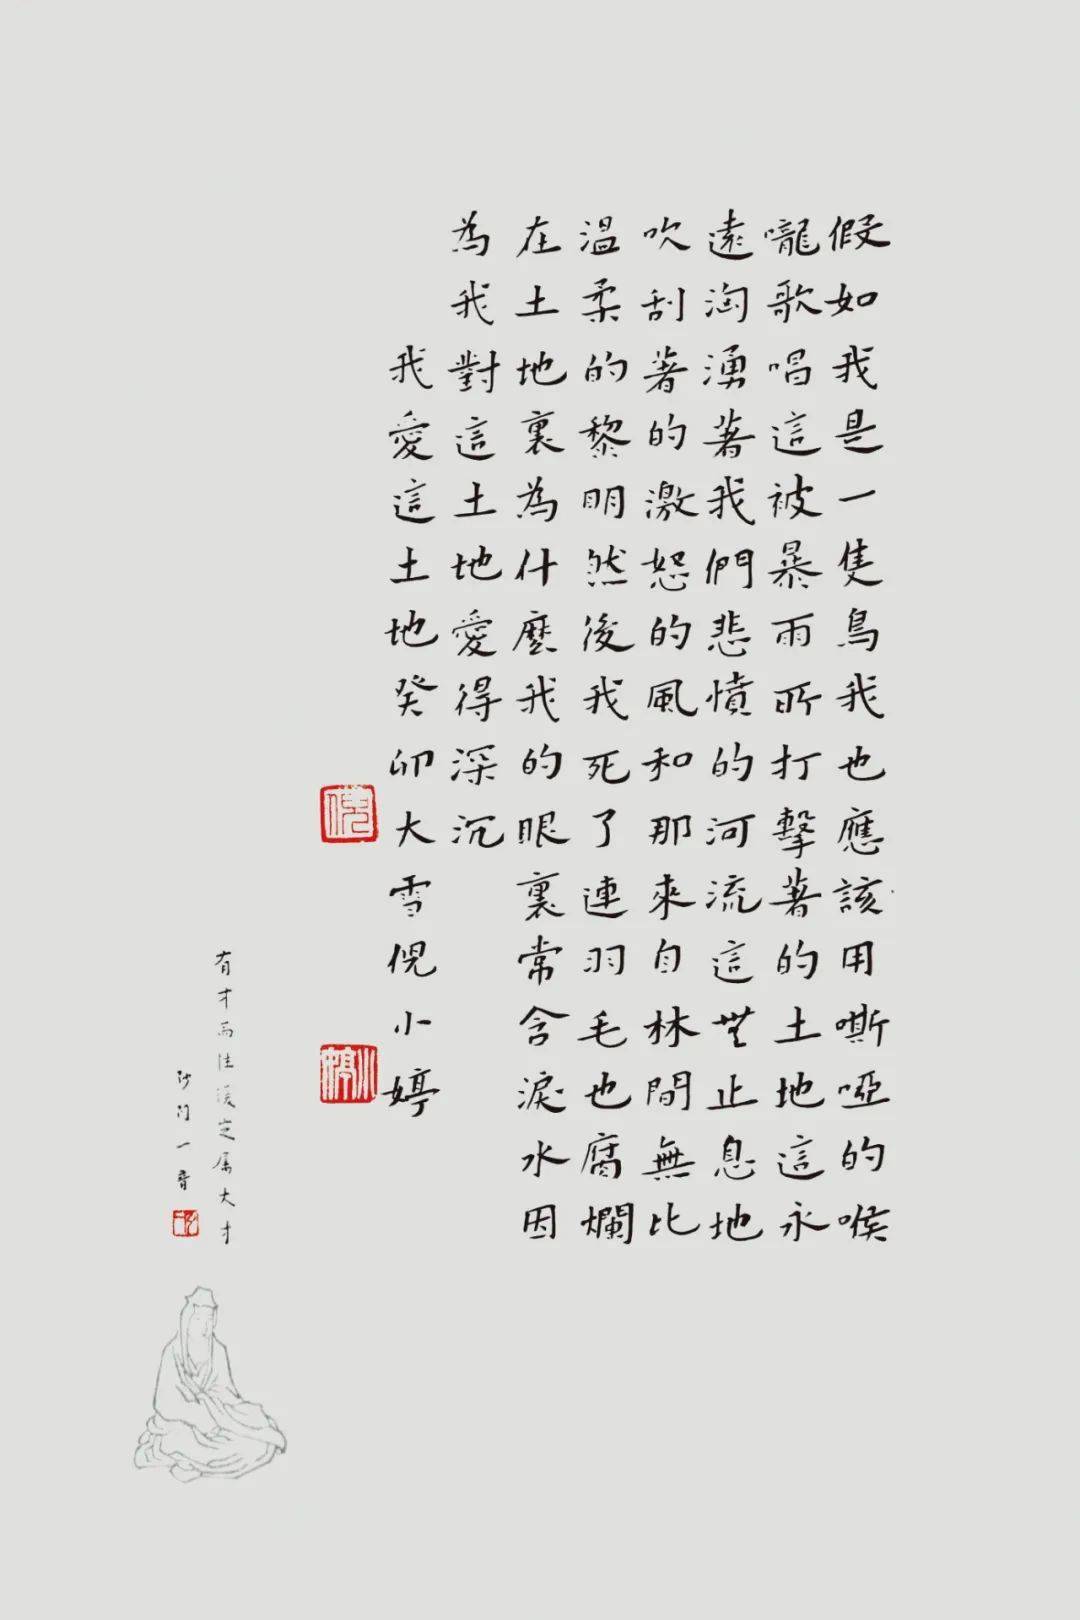 假如我是一隻鳥我也應該用嘶啞的喉
嚨歌唱這被暴雨所打擊著的土地這永
遠洶湧著我們悲憤的河流這無止息地
吹刮著的激怒的風和那來自林間無比
溫柔的黎明然後我死了連羽毛也腐爛
在土地裏為什麼我的眼裏常含淚水因
為我對這土地愛得深沉
我愛這土地癸卯大雪倪小婷
倪
小婷
有才而性缓定属大才
沙门一音